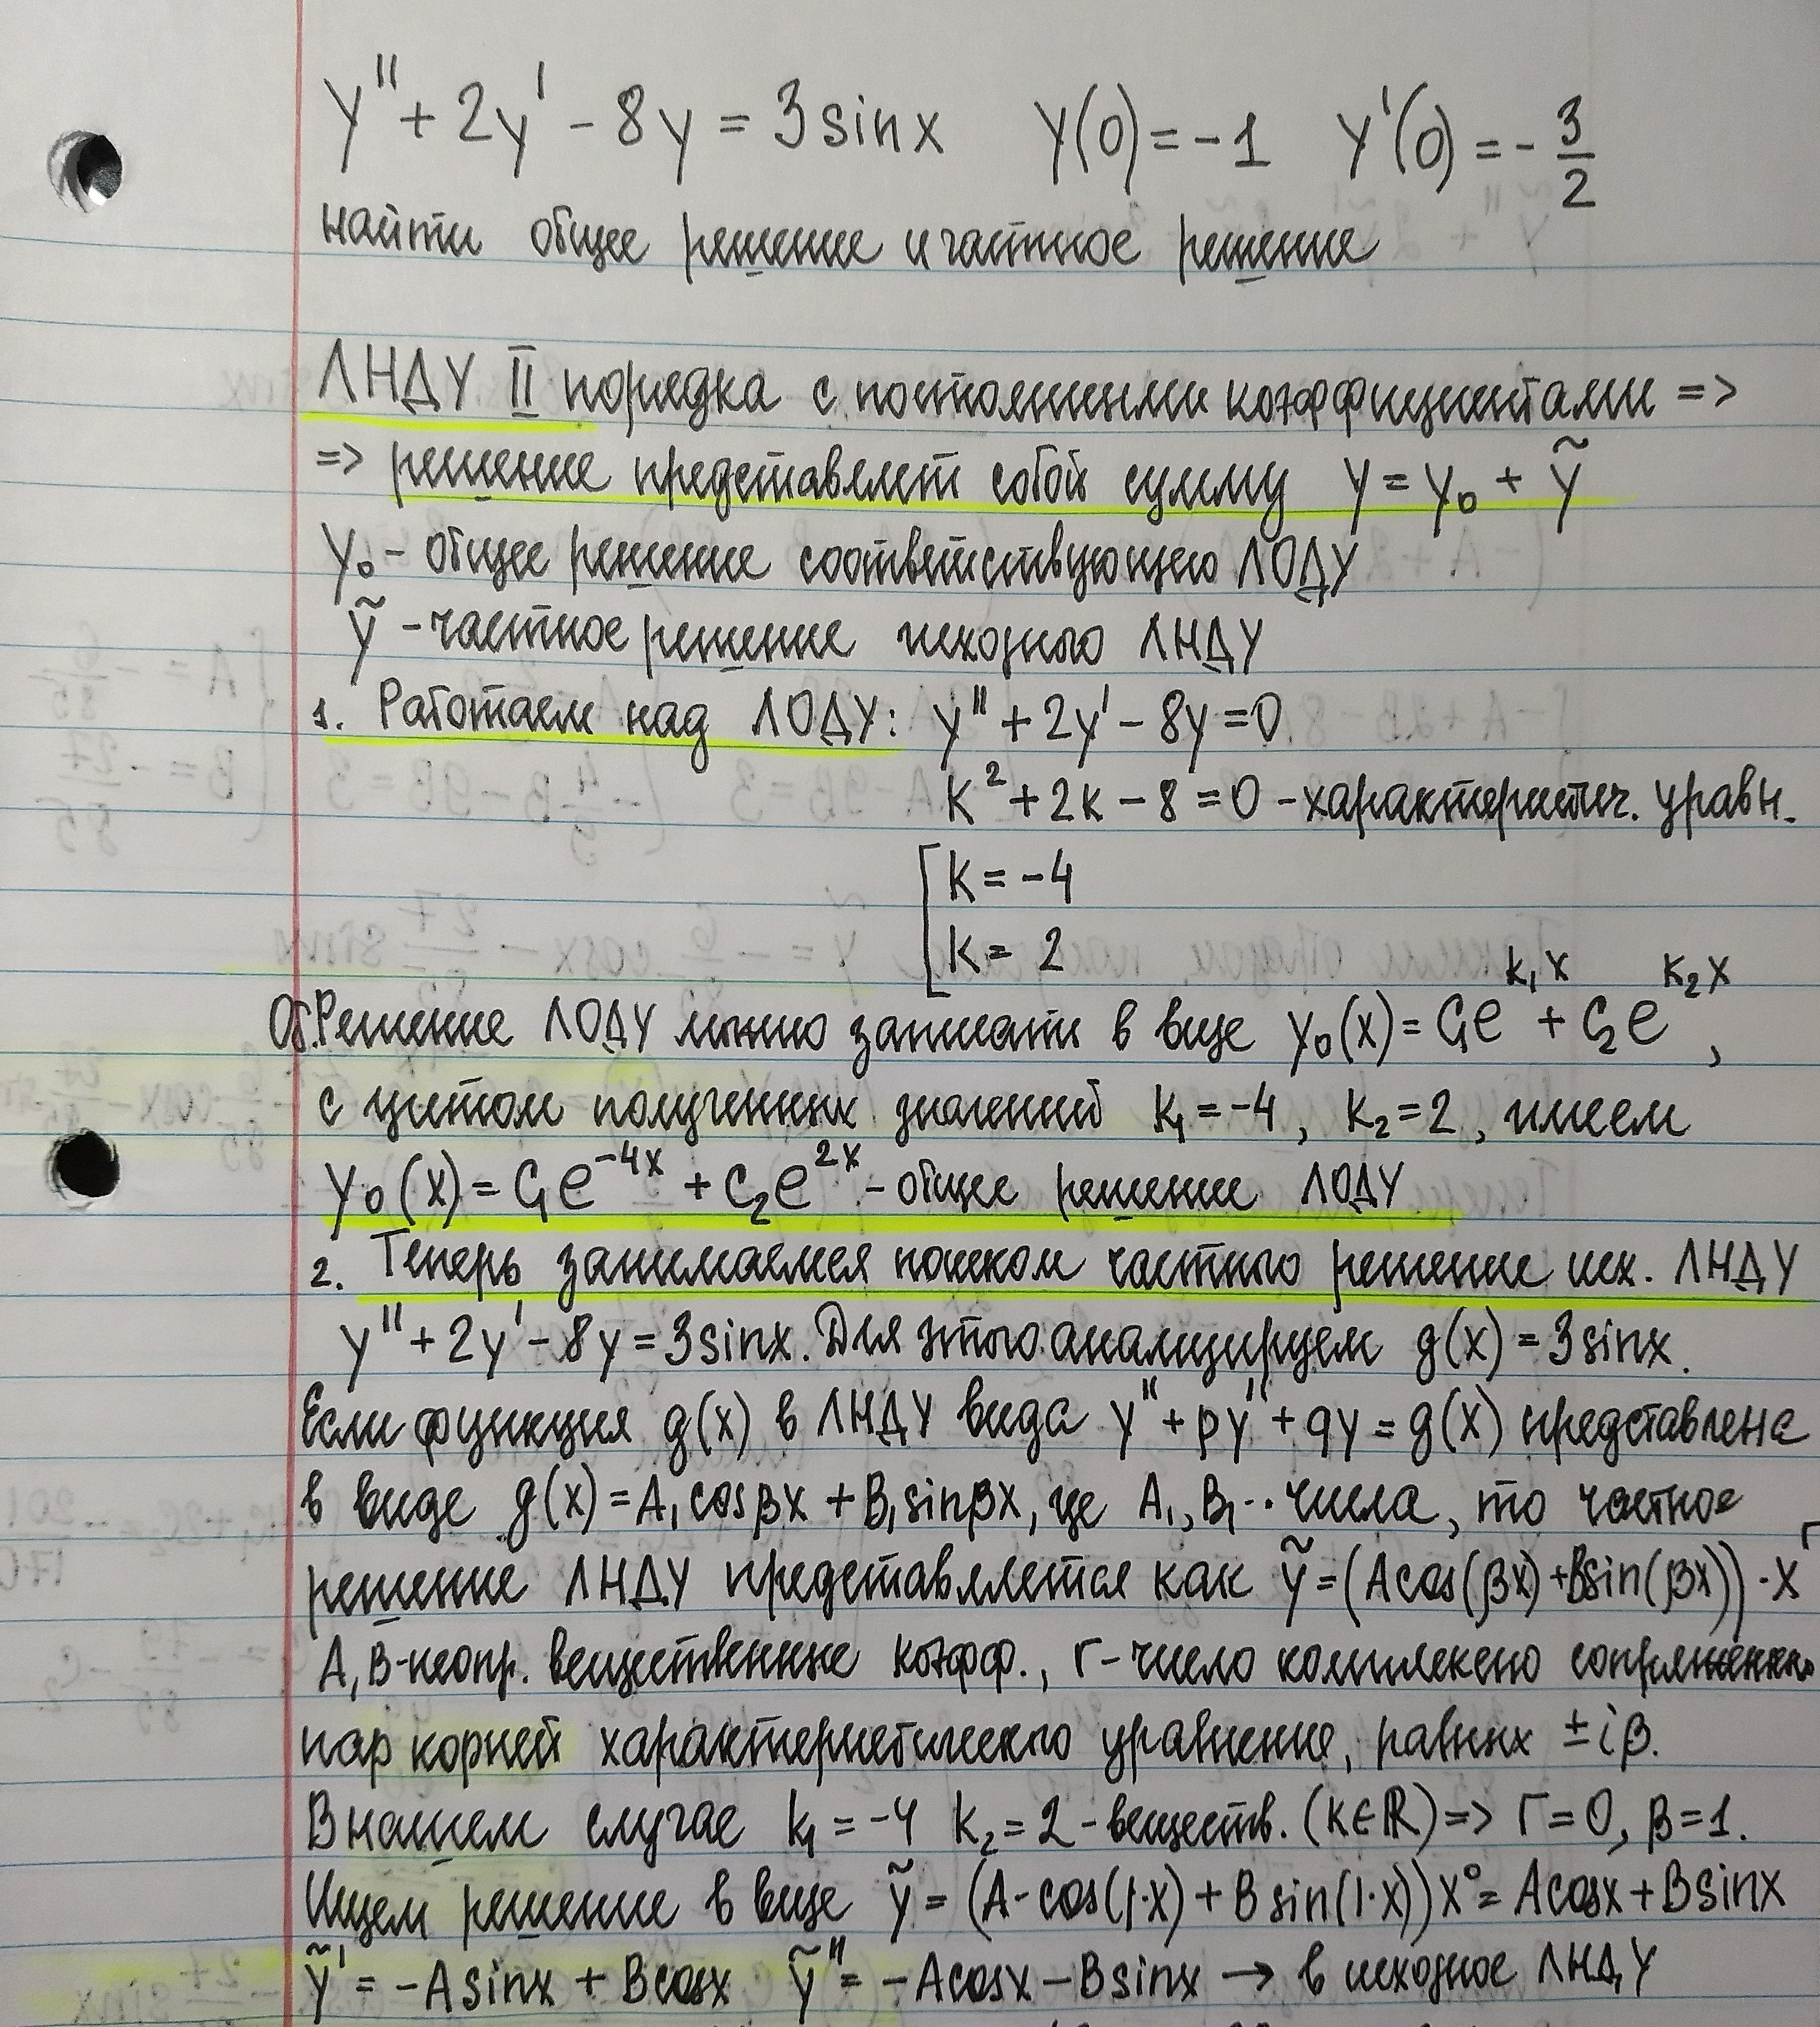 y'' + 2y' - 8y = 3sinx y(0) = -1 y'(0) = - 3/2
найти общее решение и частное решение
ЛНДУ II порядка с постоянными коэффициентами =>
=> решение представляет собой сумму y = y₀ + ỹ
y₀ - общее решение соответствующего ЛОДУ
ỹ - частное решение исходного ЛНДУ
1. Работаем над ЛОДУ: y'' + 2y' - 8y = 0
k² + 2k - 8 = 0 - характеристич. уравн.
[ k = -4
k = 2
Об. Решение ЛОДУ можно записать в виде y₀(x) = C₁e^(k₁x) + C₂e^(k₂x),
с учётом полученных значений k₁ = -4, k₂ = 2, имеем
y₀(x) = C₁e^(-4x) + C₂e^(2x) - общее решение ЛОДУ
2. Теперь занимаемся поиском частного решение исх. ЛНДУ
y'' + 2y' - 8y = 3sinx. Для этого анализируем g(x) = 3sinx.
Если функция g(x) в ЛНДУ вида y'' + py'' + qy = g(x) представлена
в виде g(x) = A₁cosβx + B₁sinβx, где A₁, B₁ - числа, то частное
решение ЛНДУ представляется как ỹ = (Acos(βx) + Bsin(βx)) · x^r
A, B - неопр. вещественные коэфф., r - число комплексно сопряжённых
пар корней характеристического уравнение, равных ± iβ.
В нашем случае k₁ = -4 k₂ = 2 - веществ. (k ∈ ℝ) => r = 0, β = 1.
Ищем решение в виде ỹ = (A · cos(1·x) + B sin(1·x)) x⁰ = Acosx + Bsinx
ỹ' = -Asinx + Bcosx ỹ'' = -Acosx - Bsinx → в исходное ЛНДУ